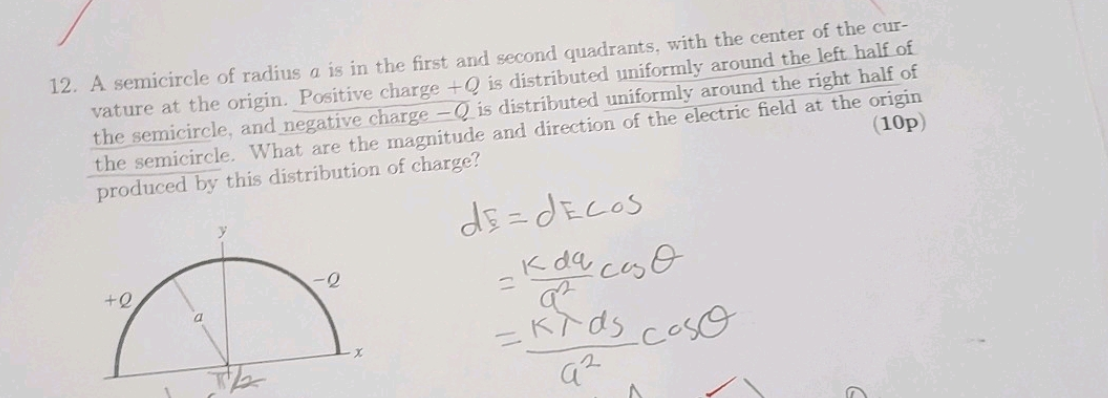 12. A semicircle of radius a is in the first and second quadrants, with the center of the cur-
vature at the origin. Positive charge +Q is distributed uniformly around the left half of
the semicircle, and negative charge −Q is distributed uniformly around the right half of
the semicircle. What are the magnitude and direction of the electric field at the origin
produced by this distribution of charge?
(10p)
y
+Q
−Q
a
x
π/2
dE = dE cos
= K dq / a² cos θ
= K λ ds / a² cos θ